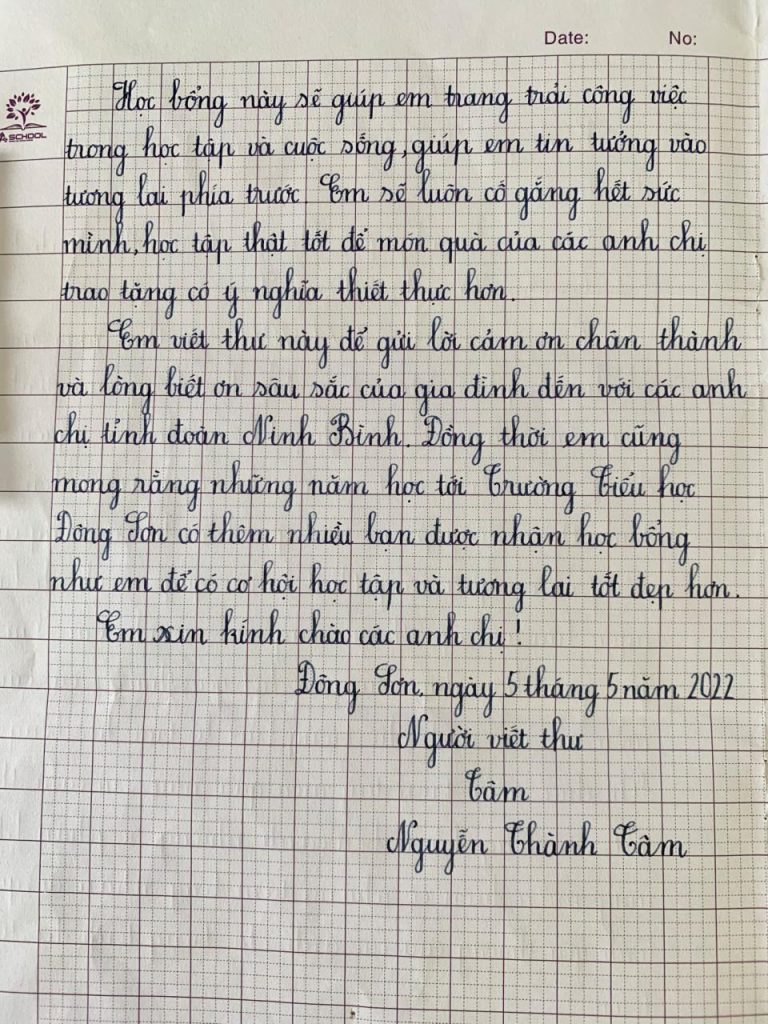 Date: No:
A SCHOOL
Học bổng này sẽ giúp em trang trải công việc
trong học tập và cuộc sống, giúp em tin tưởng vào
tương lai phía trước. Em sẽ luôn cố gắng hết sức
mình, học tập thật tốt để món quà của các anh chị
trao tặng có ý nghĩa thiết thực hơn.
Em viết thư này để gửi lời cảm ơn chân thành
và lòng biết ơn sâu sắc của gia đình đến với các anh
chị tỉnh đoàn Ninh Bình. Đồng thời em cũng
mong rằng những năm học tới Trường Tiểu học
Đông Sơn có thêm nhiều bạn được nhận học bổng
như em để có cơ hội học tập và tương lai tốt đẹp hơn.
Em xin kính chào các anh chị!
Đông Sơn, ngày 5 tháng 5 năm 2022
Người viết thư
Tâm
Nguyễn Thành Tâm